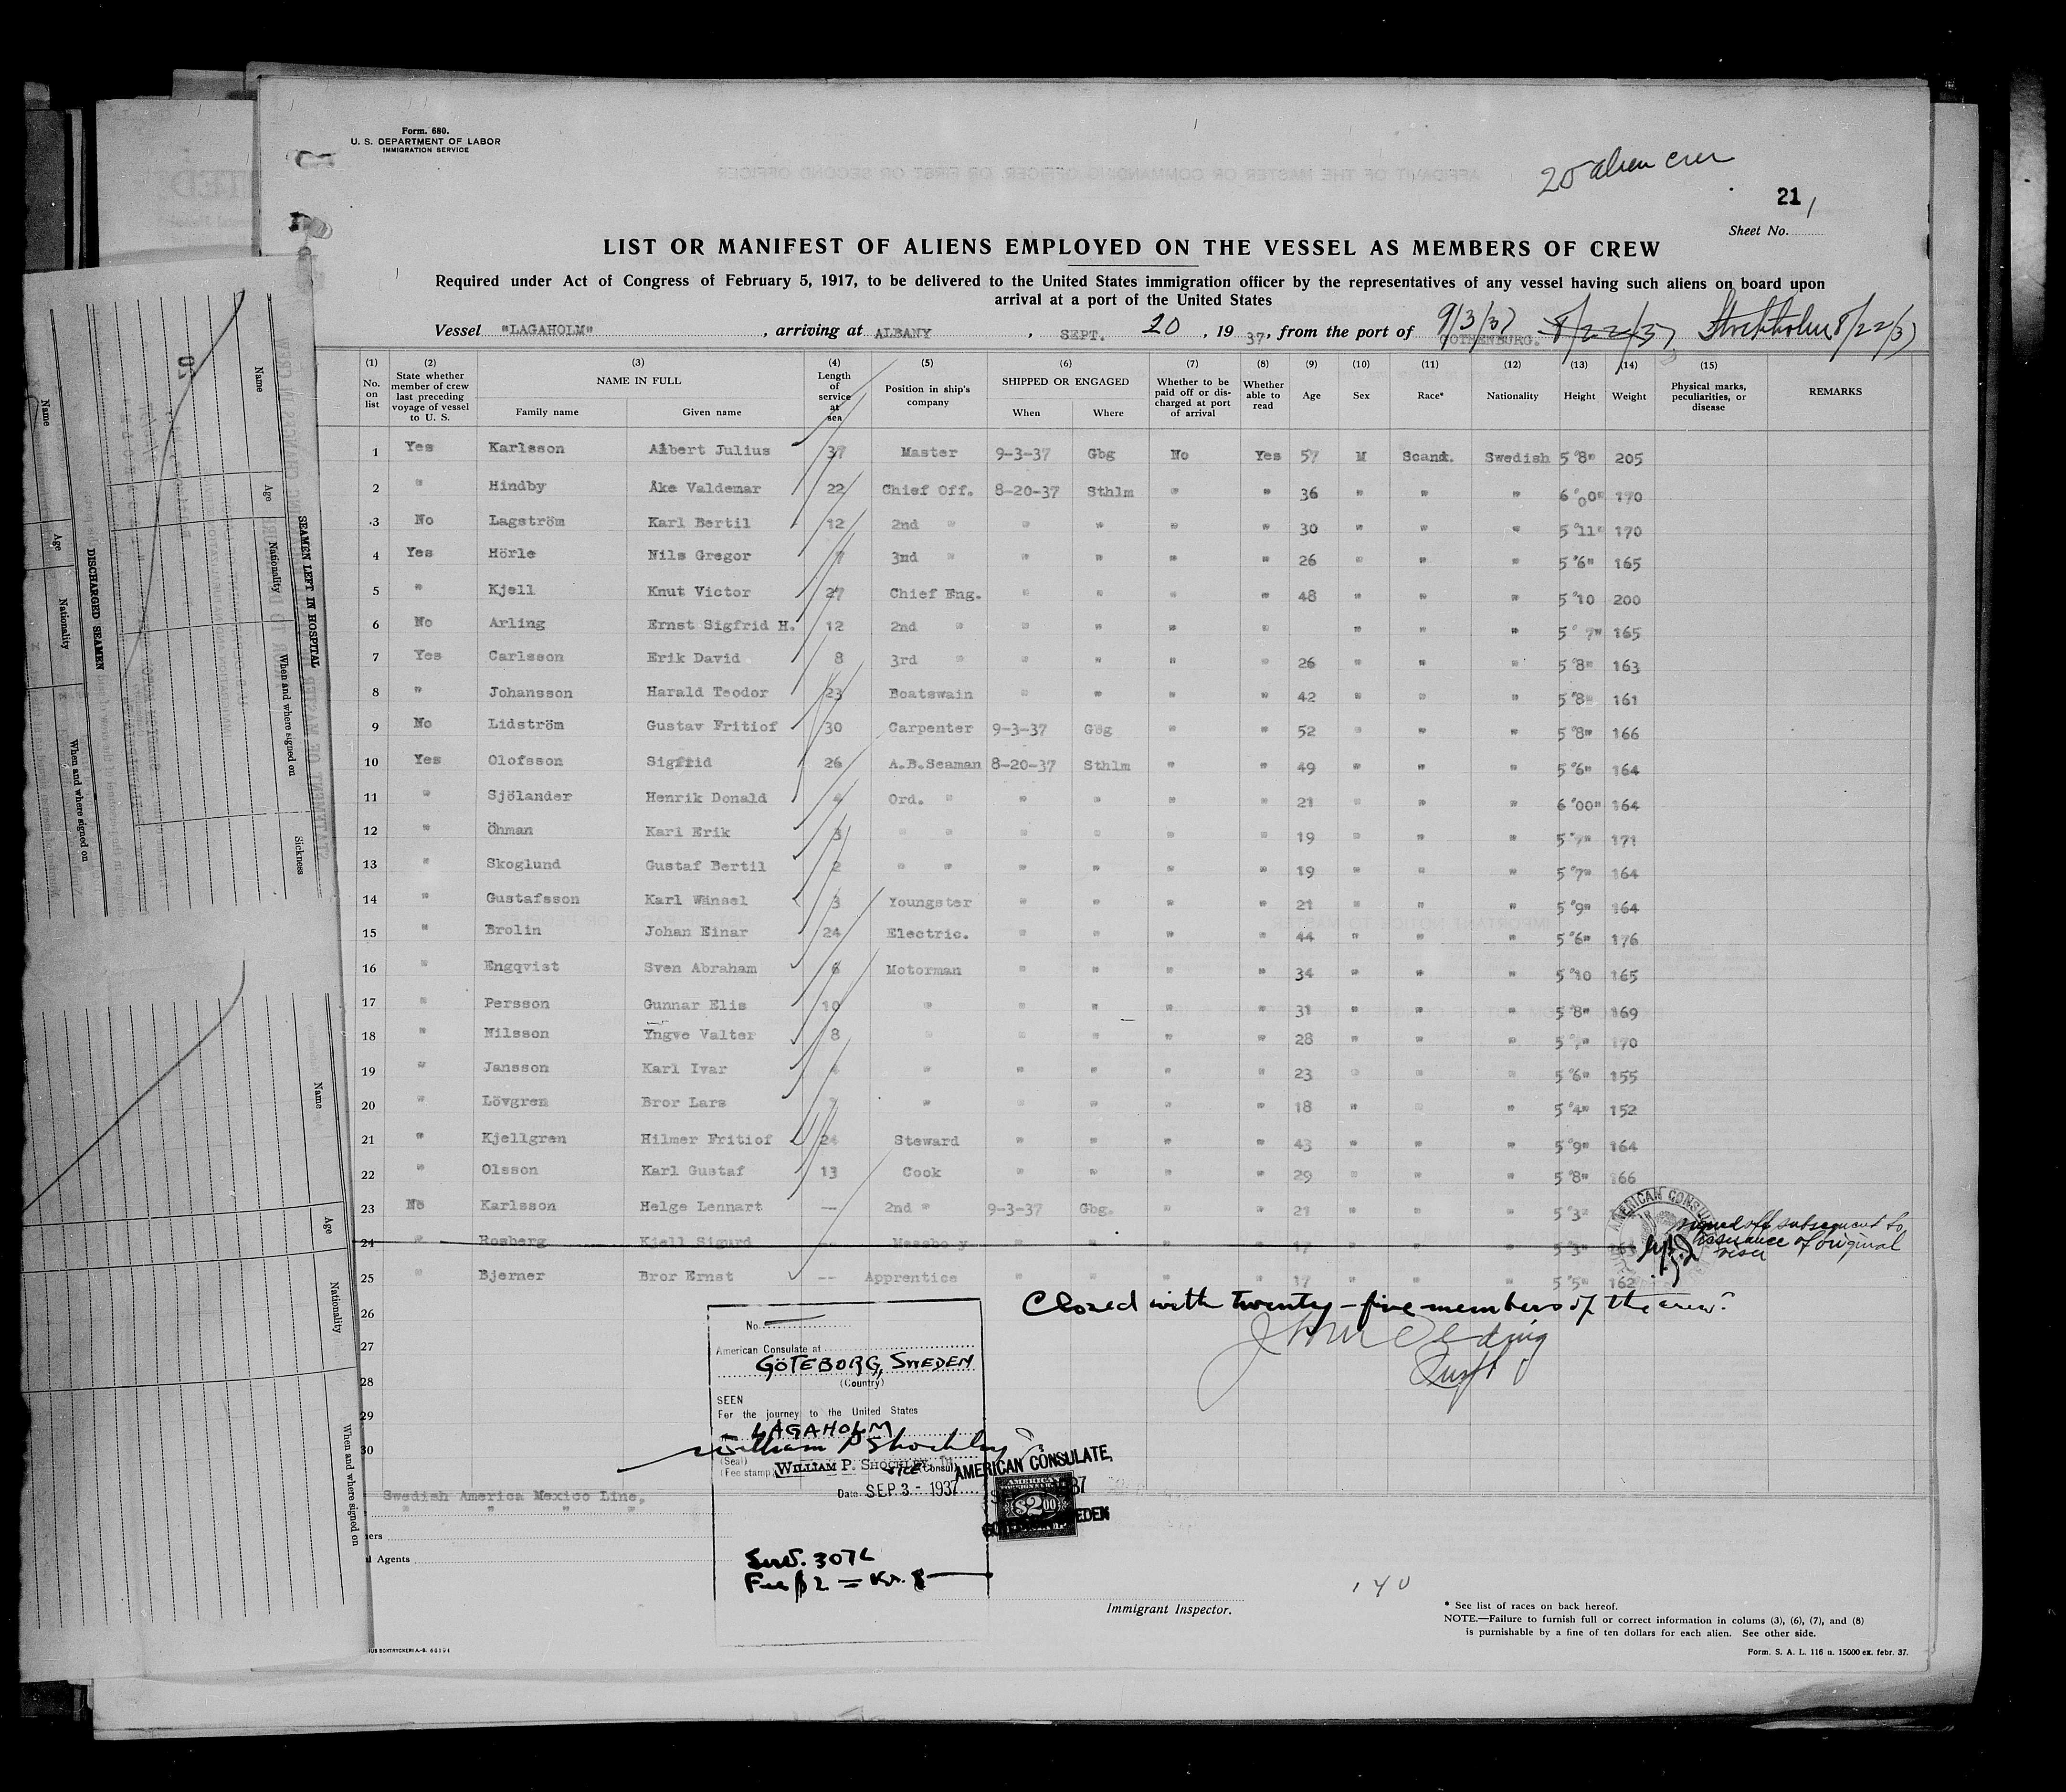 Form. 680.
U. S. DEPARTMENT OF LABOR
IMMIGRATION SERVICE
20 alien crew
21
Sheet No.
LIST OR MANIFEST OF ALIENS EMPLOYED ON THE VESSEL AS MEMBERS OF CREW
Required under Act of Congress of February 5, 1917, to be delivered to the United States immigration officer by the representatives of any vessel having such aliens on board upon
arrival at a port of the United States
Vessel "LAGAHOLM", arriving at ALBANY, SEPT. 20, 1937, from the port of GOTHENBURG. 9/3/37 8/22/37 Stockholm 8/22/37
(1) (2) (3) (4) (5) (6) (7) (8) (9) (10) (11) (12) (13) (14) (15)
No. on list
State whether member of crew last preceding voyage of vessel to U. S.
NAME IN FULL
Family name Given name
Length of service at sea
Position in ship's company
SHIPPED OR ENGAGED
When Where
Whether to be paid off or discharged at port of arrival
Whether able to read
Age Sex Race* Nationality Height Weight
Physical marks, peculiarities, or disease
REMARKS
1 Yes Karlsson Albert Julius 37 Master 9-3-37 Gbg No Yes 57 M Scand. Swedish 5'8" 205
2 " Hindby Åke Valdemar 22 Chief Off. 8-20-37 Sthlm " " 36 " " " 6'00" 170
3 No Lagström Karl Bertil 12 2nd " " " " " 30 " " " 5'11" 170
4 Yes Hörle Nils Gregor 7 3nd " " " " " 26 " " " 5'6" 165
5 " Kjell Knut Victor 27 Chief Eng. " " " " 48 " " " 5'10 200
6 No Arling Ernst Sigfrid H. 12 2nd " " " " " " " " 5'7" 165
7 Yes Carlsson Erik David 8 3rd " " " " " 26 " " " 5'8" 163
8 " Johansson Harald Teodor 23 Boatswain " " " " 42 " " " 5'8" 161
9 No Lidström Gustav Fritiof 30 Carpenter 9-3-37 Gbg " " 52 " " " 5'8" 166
10 Yes Olofsson Sigfrid 26 A.B.Seaman 8-20-37 Sthlm " " 49 " " " 5'6" 164
11 " Sjölander Henrik Donald 4 Ord. " " " " " 21 " " " 6'00" 164
12 " Öhman Karl Erik 3 " " " " " " 19 " " " 5'7" 171
13 " Skoglund Gustaf Bertil 2 " " " " " " 19 " " " 5'7" 164
14 " Gustafsson Karl Wänsel 3 Youngster " " " " 21 " " " 5'9" 164
15 " Brolin Johan Einar 24 Electric. " " " " 44 " " " 5'6" 176
16 " Engqvist Sven Abraham 6 Motorman " " " " 34 " " " 5'10 165
17 " Persson Gunnar Elis 10 " " " " " 31 " " " 5'8" 169
18 " Nilsson Yngve Valter 8 " " " " " 28 " " " 170
19 " Jansson Karl Ivar " " " " " 23 " " " 5'6" 155
20 " Lövgren Bror Lars " " " " " 18 " " " 5'4" 152
21 " Kjellgren Hilmer Fritiof 24 Steward " " " " 43 " " " 5'9" 164
22 " Olsson Karl Gustaf 13 Cook " " " " 29 " " " 5'8" 166
23 No Karlsson Helge Lennart -- 2nd " 9-3-37 Gbg. " " 21 " " " 5'3"
24 " Rosberg Kjell Sigurd -- Messboy " " " " 17 " " " 5'3" 163
25 " Bjerner Bror Ernst -- Apprentice " " " " 17 " " " 5'5" 162
signed off subsequent to
issuance of original
visa
AMERICAN CONSUL
26
27
28
29
30
Closed with twenty-five members of the crew.
No.
American Consulate at
GÖTEBORG, SWEDEN
(Country)
SEEN
For the journey to the United States
LAGAHOLM
William P Shockley
(Seal)
(Fee stamp) WILLIAM P. SHOCKLEY, Vice Consul
Date SEP 3 - 1937
AMERICAN CONSULATE,
$2.00
Serv. 3072
Fee $2 = Kr. 8
Swedish America Mexico Line,
" " " "
Agents
140
Immigrant Inspector.
* See list of races on back hereof.
NOTE.—Failure to furnish full or correct information in colums (3), (6), (7), and (8)
is punishable by a fine of ten dollars for each alien. See other side.
Form. S. A. L. 116 n. 15000 ex. febr. 37.
SEAMEN LEFT IN HOSPITAL
Name Age Nationality When and where signed on Sickness
DISCHARGED SEAMEN
Name Age Nationality When and where signed on
Name Age Nationality When and where signed on